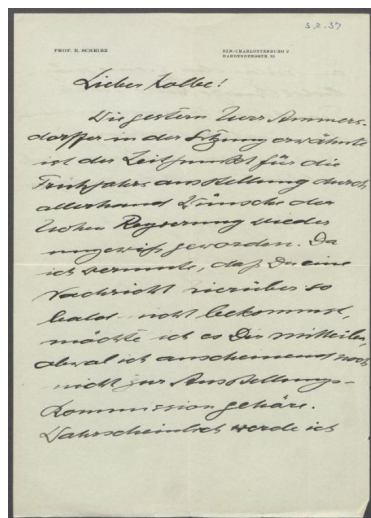 3.2.37
PROF. R. SCHEIBE
BLN-CHARLOTTENBURG 2
HARDENBERGSTR. 33
Lieber Kolbe!
Wie gestern Herr Ammers-
dorffer in der Sitzung erwähnte
ist der Zeitpunkt für die
Frühjahrsausstellung durch
allerhand Wünsche der
hohen Regierung wieder
ungewiß geworden. Da
ich vermute, daß Du eine
Nachricht hierüber so
bald nicht bekommst,
möchte ich es Dir mitteilen,
obwol ich anscheinend noch
nicht zur Ausstellungs-
Kommission gehöre.
Wahrscheinlich werde ich